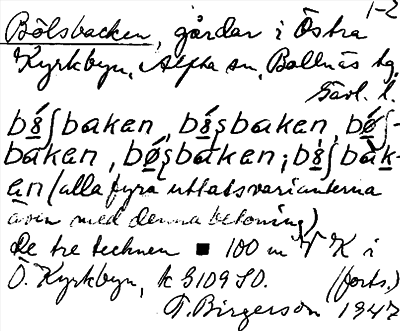 1-2
Bölsbacken, gårdar i Östra
Kyrkbyn, Alfta sn, Bollnäs tg.
Gävl. l.
bö́ʃbaken, bö́sbaken, bǿʃ-
baken, bǿʂbaken; bö̀ʃbàk-
ən (alla fyra uttalsvarianterna
även med denna betoning)
De tre tecknen ■ 100 m V K i
Ö. Kyrkbyn, k G109 SO. (forts.)
T. Birgerson 1947